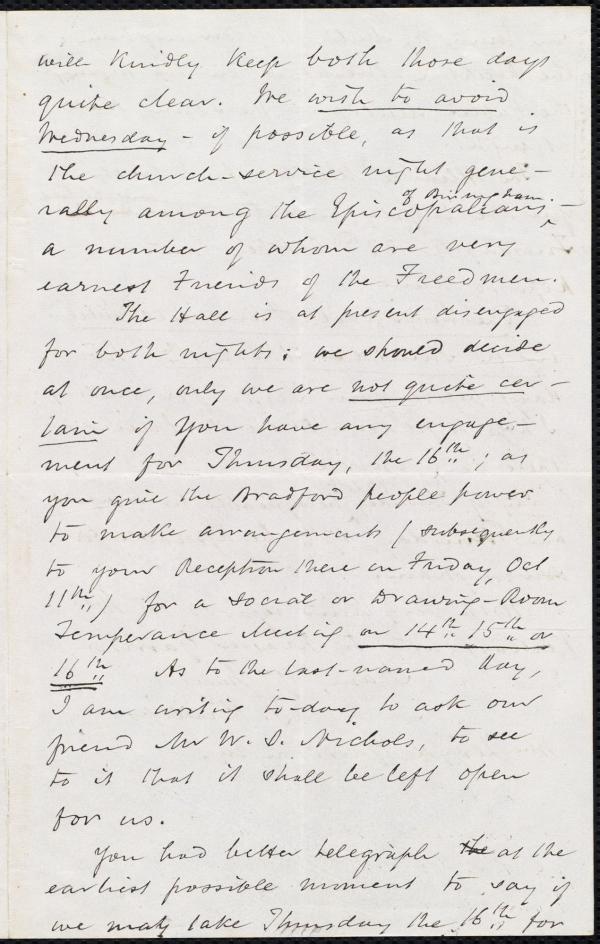 will kindly keep both those days
quite clear. We wish to avoid
Wednesday - if possible, as that is
the church-service night gene-
of Birmingham.
rally among the Episcopalians, -
a number of whom are very
earnest Friends of the Freedmen.
The Hall is at present disengaged
for both nights; we should decide
at once, only we are not quite cer-
tain if you have any engage-
ment for Thursday, the 16th; as
you give the Bradford people power
to make arrangements (subsequently
to your Reception there on Friday, Oct
11th) for a Social or Drawing-Room
Temperance Meeting on 14th 15th or
16th As to the last-named day,
I am writing to-day to ask our
friend Mr W. S. Nichols, to see
to it that it shall be left open
for us.
You had better telegraph the at the
earliest possible moment to say if
we may take Thursday the 16th for